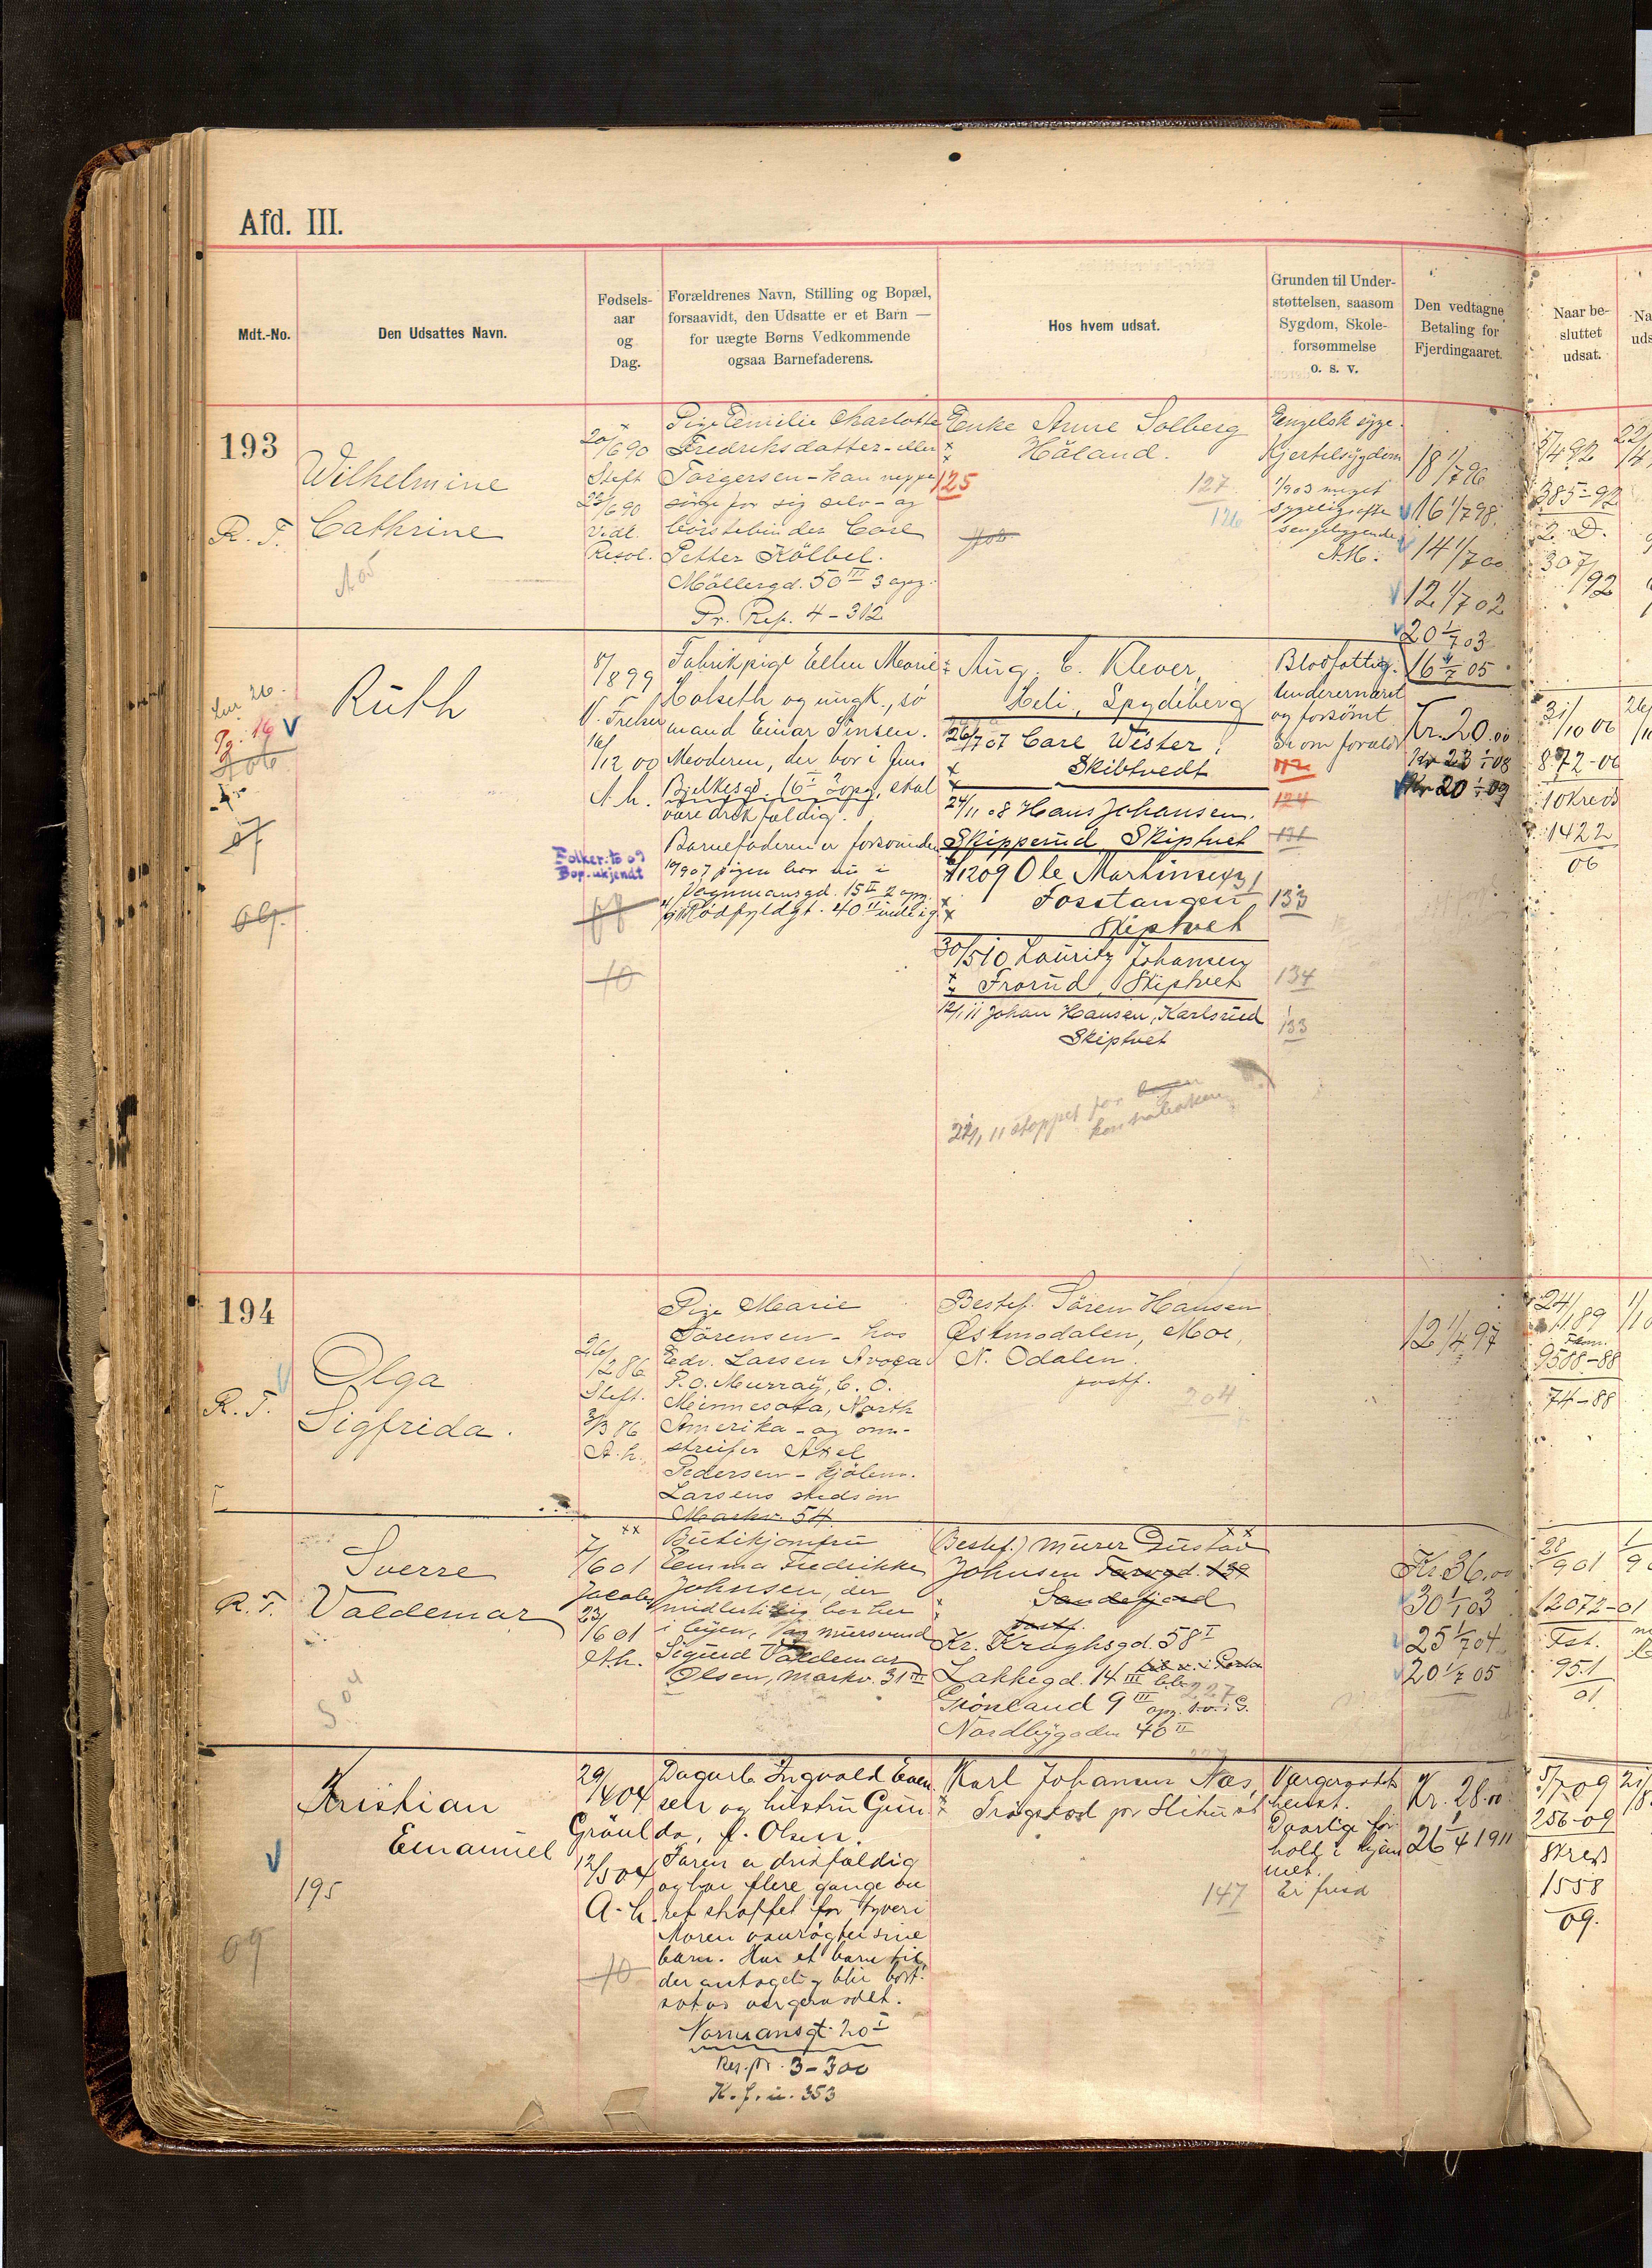 Afd. III.
Mdt.-No.
Den Udsattes Navn.
Fødsels-
aar
og
Dag.
Forældrenes Navn, Stilling og Bopæl,
forsaavidt, den Udsatte er et Barn —
for uægte Børns Vedkommende
ogsaa Barnefaderens.
Hos hvem udsat.
Grunden til Under-
støttelsen, saasom
Sygdom, Skole-
forsømmelse
o. s. v.
Den vedtagne
Betaling for
Fjerdingaaret.
Naar be-
sluttet
udsat.
193
Wilhelmine
Cathrine
R. F.
20/6 90
Steft
22/6 90
Vidt.
Resol.
Pige Emilie Charlotte
Fredriksdatter - eller
Torgersen - kan neppe
sørge for sig selv - og
børstebinder Carl
Petter Kölbel.
Møllergd. 50 III 3 opg.
Pr. Rep. 4 - 312
Enke Anne Solberg
Håland.
125
127
126
Engelsk syge.
Kjertelsygdom
1/9 03 meget
sygelig ofte
sengeliggende
A.M.
18 1/7 96
16 1/7 98.
14 1/7 00
12 1/7 02
20 1/7 03
16 1/7 05
5/4 92
385-92
2. D.
307/92
Ruth
8/8 99
V. Frelser
16/12 00
A. h.
Fabrikpige Ellen Marie
Halseth og ungk., sø
mand Einar Jinsen.
Moderen, der bor i Jens
Bjelkesgd. 16 I 2 opg, skal
være drikfældig.
Barnefaderen er forsvunden
10/9 07 pigen bor nu i
Vognmansgd. 15 II 2 opg.
Rødfyldgt. 40 II
Folker. to 09
Bop. ukjendt
10
Aug. E. Klever,
Heli, Spydeberg
26/7 07 Carl Wister
Skibtvedt
24/11 08 Hans Johansen.
Skipperud Skiptvet
1/12 09 Ole Martinsen
Fosstangen
Skiptvet
30/5 10 Lauritz Johansen
Frorud, Skiptvet
12/1 11 Johan Hansen, Karlsrud
Skiptvet
22/1 11 stoppet for
Blodfattig.
underernæret
og forsømt
112
124
131
133
134
133
Kr. 20.00
Kr 23 1/1 08
Kr 20 1/1 09
31/10 06
872-06
10 Kreds
1422
06
194
Olga
Sigfrida.
R. F.
26/12 86
Steft.
3/3 86
A. h.
Pige Marie
Sørensen - hos
Edv. Larsen Avoca
P. O. Murray, C. O.
Minnesota, North
Amerika - og om-
streifer Axel
Pedersen - Kjølem.
Larsens stedsøn
Markv. 54
Bestef. Søren Hansen
Østmodalen, Moe,
N. Odalen.
postf.
204
12 1/4 97
24/11 89
9508-88
74-88
Sverre
Valdemar
R. F.
7/6 01
Jacobs
23/6 01
A. h.
Butikjomfru
Emma Fredrikke
Johnsen, der
midlertidig bor her
i byen, og mursvend
Sigurd Valdemar
Olsen, Markv. 31 III
(Bestef.) murer Gustav
Johnsen Farvegd. 139
Sandefjord
postf.
Kr. Kroghsgd. 58 I
Lakkegd. 14 III
Grønland 9 III opg. t.v. i G.
Nordbygaden 40 II
227
Kr 36.00
30 1/1 03
25 1/7 04
20 1/7 05
28/9 01
12072-01
Fst.
951
01
Kristian
Emanuel
195
09
29/4 04
Grønl
12/5 04
A. h.
10
Dagarb. Ingvald Even
sen og hustru Gun
da, f. Olsen.
Faren er drikfældig
og har flere gange væ
ret straffet for tyveri
Moren vanrøgter sine
barn. Har et barn til
der antagelig blir bort
sat av vergeraadet.
Normansgt. 20 I
Res. pr. 3 - 300
K. f. u. 353
Karl Johansen Næs
Trøgstad pr Slitu st
147
Vergeraadet
Daarlige for
hold i hjem
met.
Er frisk
Kr. 28.00
26 1/4 1911
5/7 09
256-09
8Kreds
1558
09.